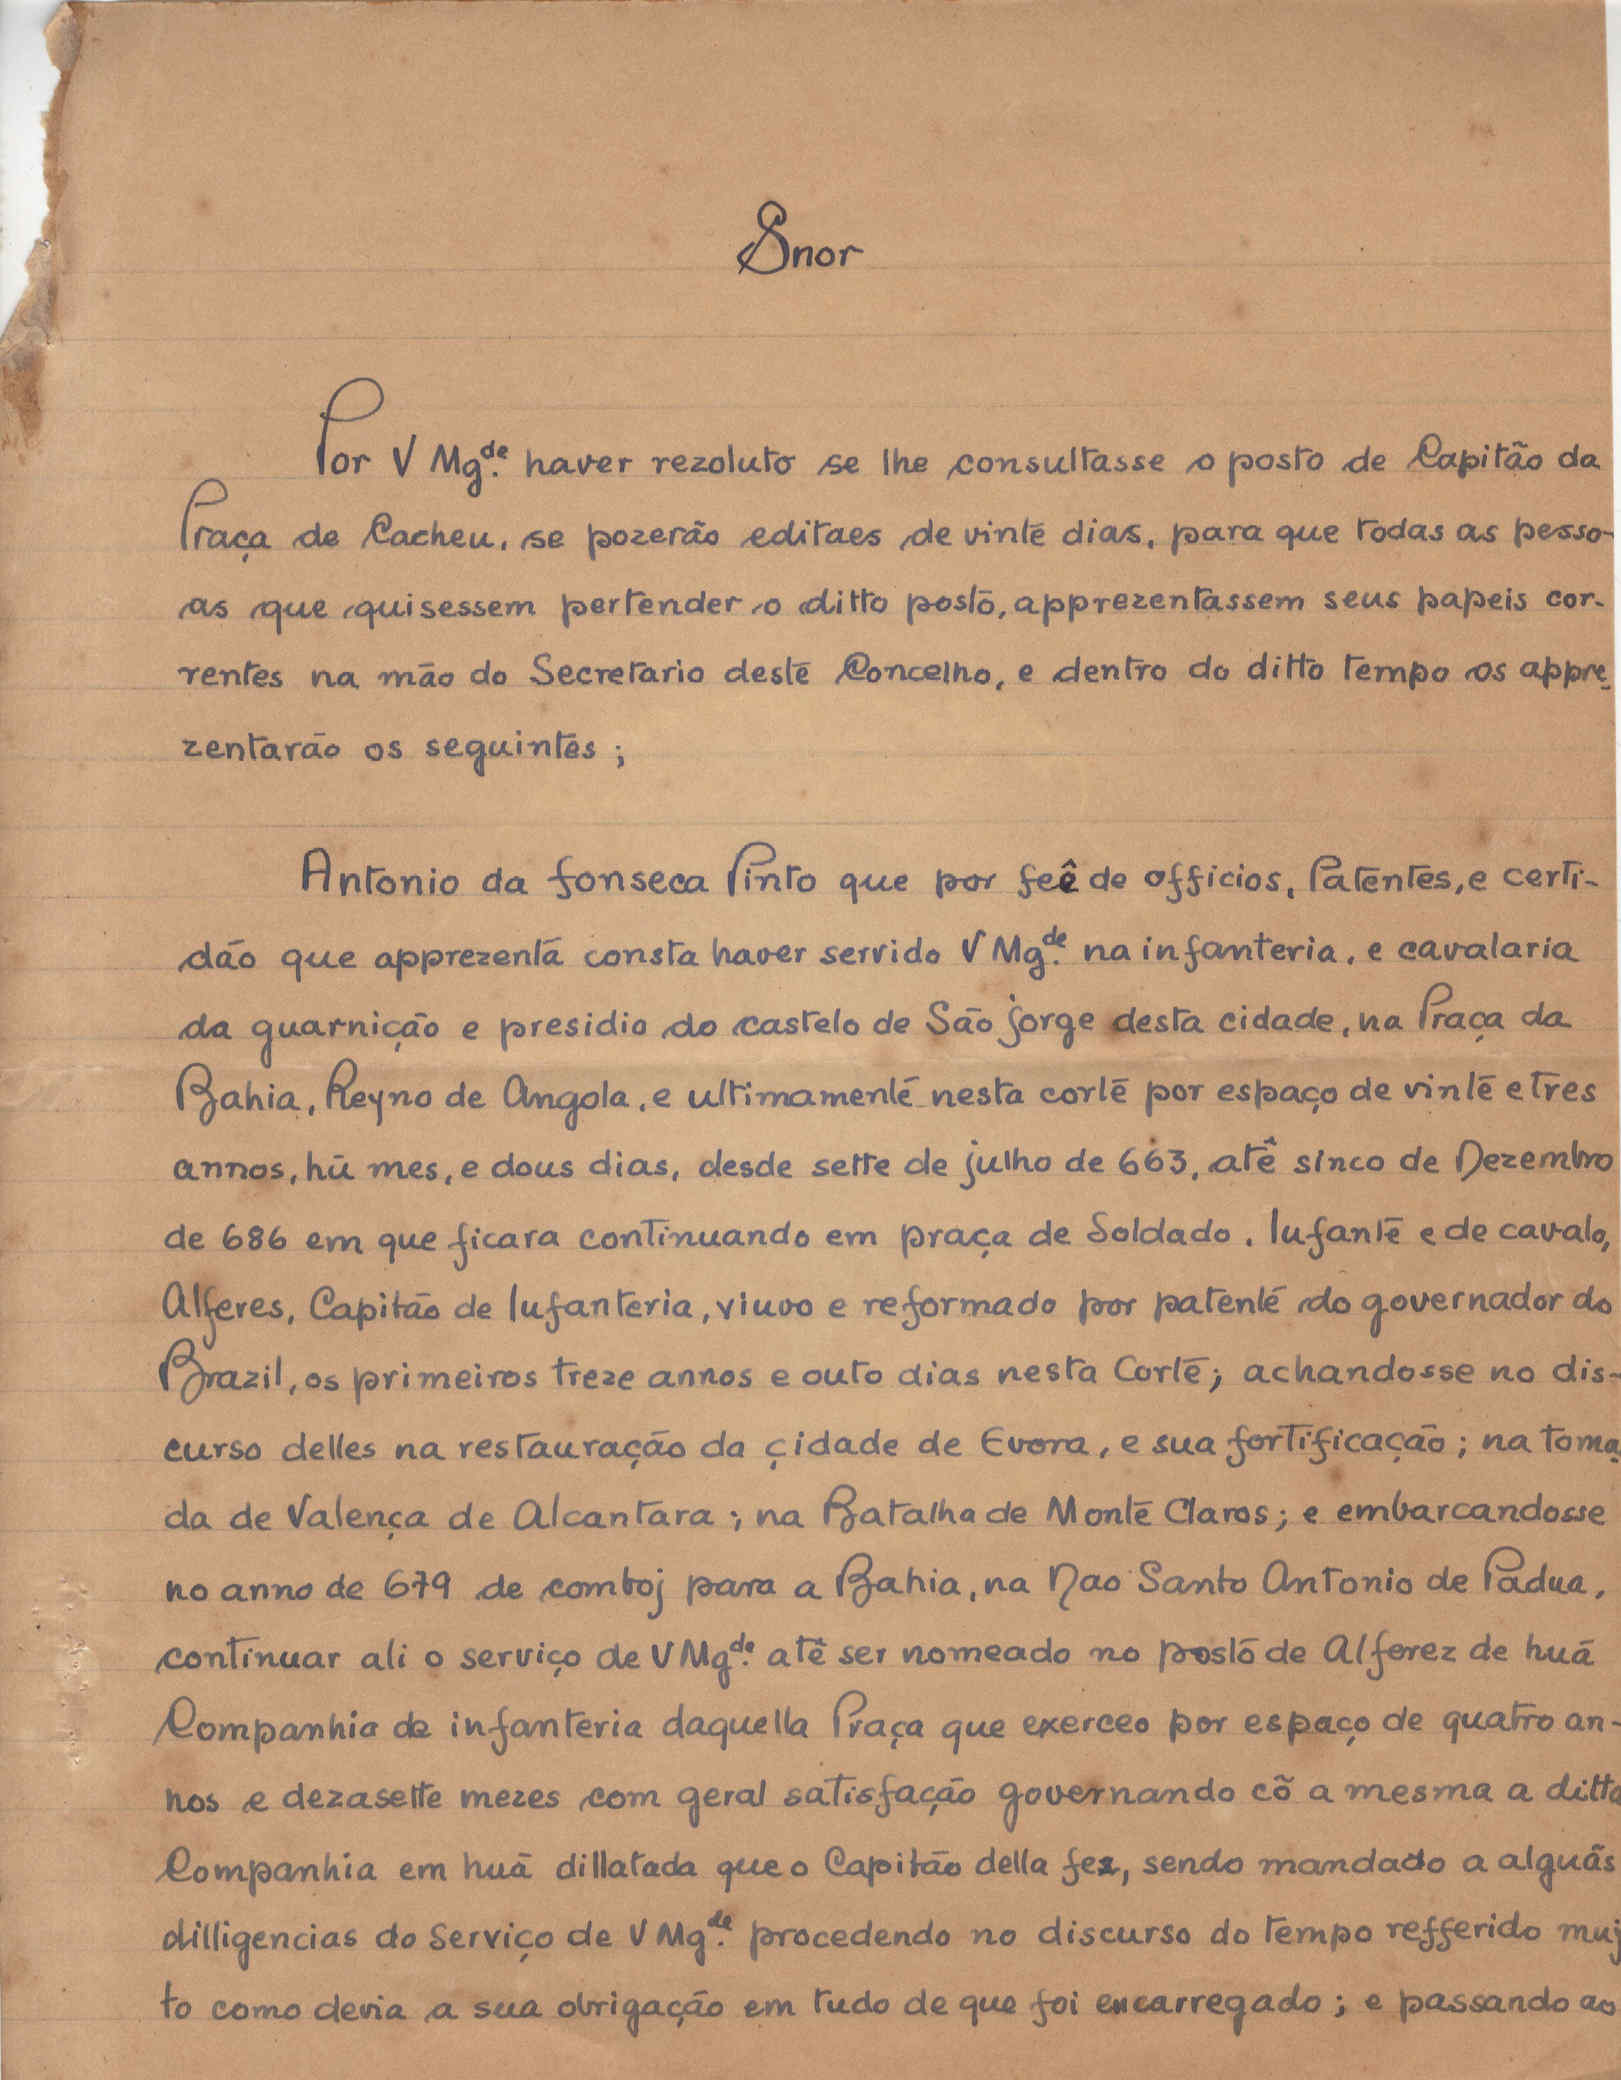 Snor
Por V Mgde. haver rezoluto se lhe consultasse o posto de Capitão da
Praça de Cacheu, se pozerão editaes de vinte dias, para que todas as pesso-
as que quisessem pertender o ditto posto, apprezentassem seus papeis cor-
rentes na mão do Secretario deste Concelho, e dentro do ditto tempo os appre-
zentarão os seguintes;
Antonio da fonseca Pinto que por feê de officios, Patentes, e certi-
dão que apprezenta consta haver servido V Mgde. na infanteria, e cavalaria
da guarnição e presidio do castelo de São jorge desta cidade, na Praça da
Bahia, Reyno de Angola, e ultimamente nesta corte por espaço de vinte e tres
annos, hũ mes, e dous dias, desde sette de julho de 663, atê sinco de Dezembro
de 686 em que ficara continuando em praça de Soldado, Infante e de cavalo,
Alferes, Capitão de Infanteria, viuvo e reformado por patente do governador do
Brazil, os primeiros treze annos e outo dias nesta Corte; achandosse no dis-
curso delles na restauração da çidade de Evora, e sua fortificação; na toma-
da de Valença de Alcantara; na Batalha de Monte Claros; e embarcandosse
no anno de 679 de comboj para a Bahia, na Nao Santo Antonio de Padua,
continuar ali o serviço de V Mgde. atê ser nomeado no posto de Alferez de huã
Companhia de infanteria daquella Praça que exerceo por espaço de quatro an-
nos e dezasette mezes com geral satisfação governando cõ a mesma a ditta
Companhia em huã dillatada que o Capitão della fez, sendo mandado a alguãs
dilligencias do Serviço de V Mgde. procedendo no discurso do tempo refferido muj
to como devia a sua obrigação em tudo de que foi encarregado; e passando ao